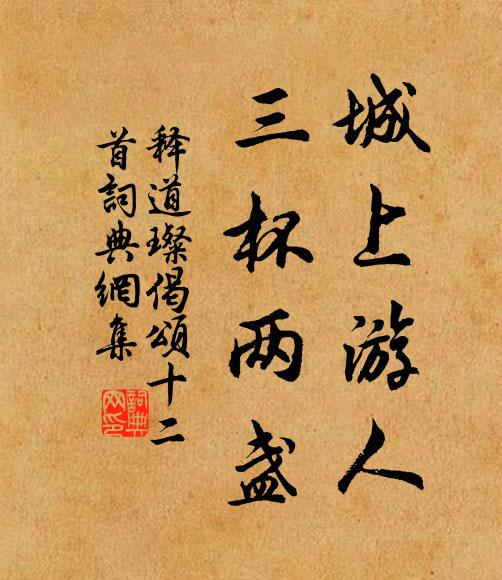 城上游人
三杯两盏
释道璨偈颂十二
首詞典網集
詞典
网印